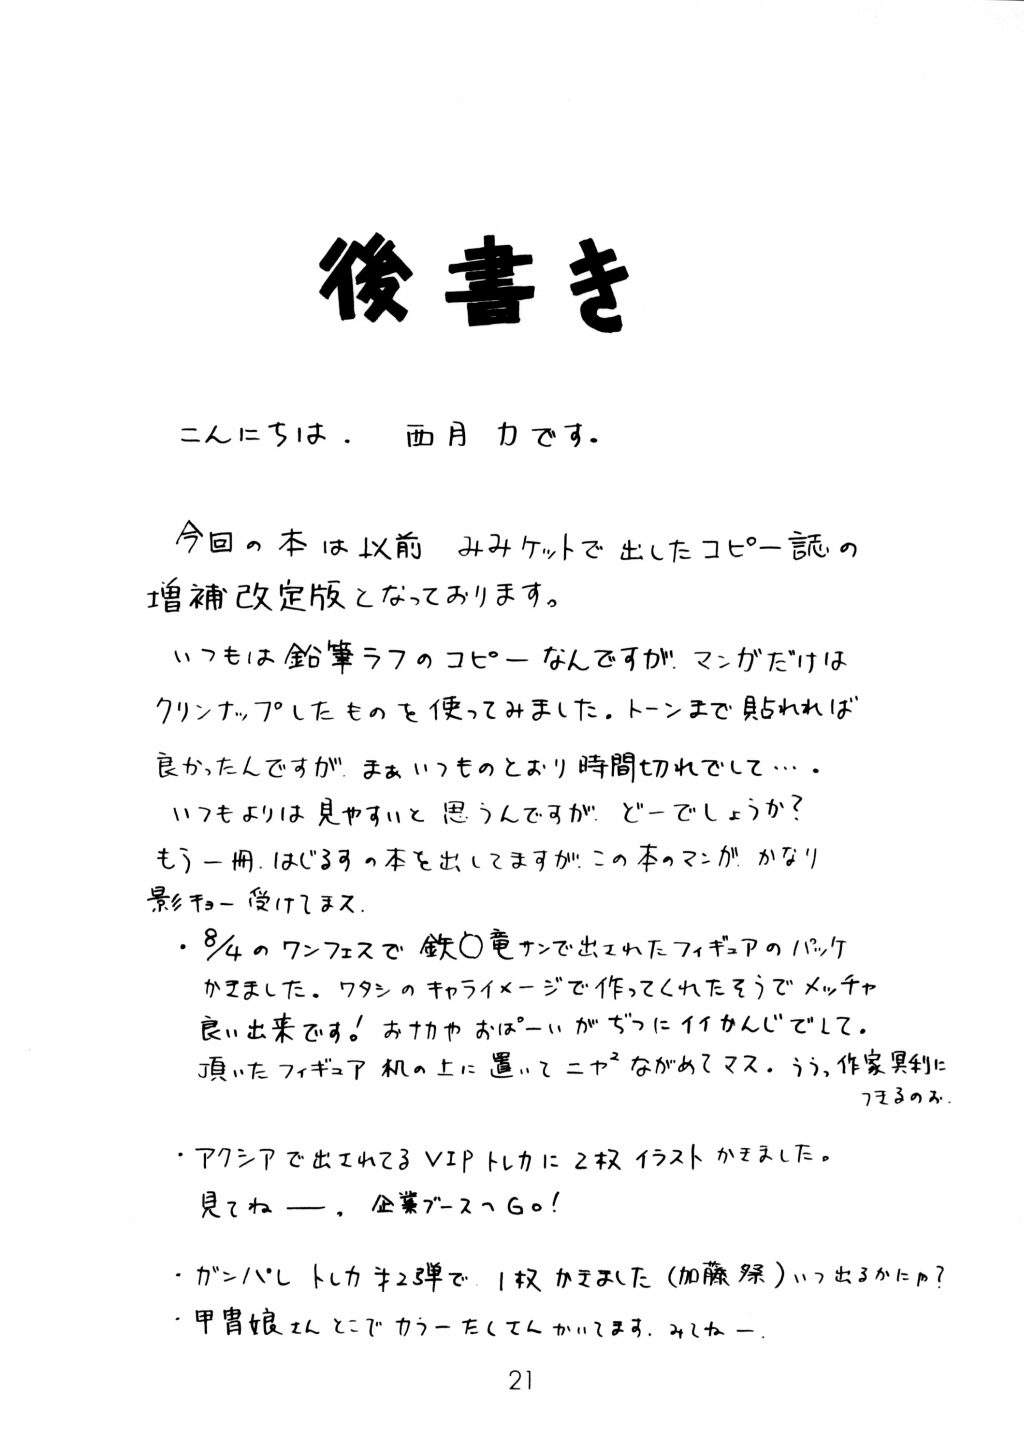 後書き
こんにちは. 西月 力です。
今回の本は以前 みみケットで出したコピー誌の
増補改定版となっております。
いつもは鉛筆ラフのコピーなんですが、マンガだけは
クリンナップしたものを使ってみました。トーンまで貼れれば
良かったんですが、まぁいつものとおり時間切れでして….
いつもよりは見やすいと思うんですが、どーでしょうか?
もう一冊、はじるすの本を出してますが、この本のマンガ、かなり
影キョー受けてます.
・8/4のワンフェスで鉄〇竜サンで出されたフィギュアのパッケ
かきました。ワタシのキャライメージで作ってくれたそうでメッチャ
良い出来です! おナカやおぱーいがぢつにイイかんじでして。
頂いたフィギュア机の上に置いてニヤ²ながめてマス。ううっ作家冥利に
つきるのお.
・アクシアで出されてるVIPトレカに2枚イラストかきました。
見てねー. 企業ブースへGo!
・ガンパレトレカ#2弾で、1枚かきました(加藤祭)いつ出るかにゅ?
・甲冑娘さんとこでカラーたくさんかいてます、みてねー.
21